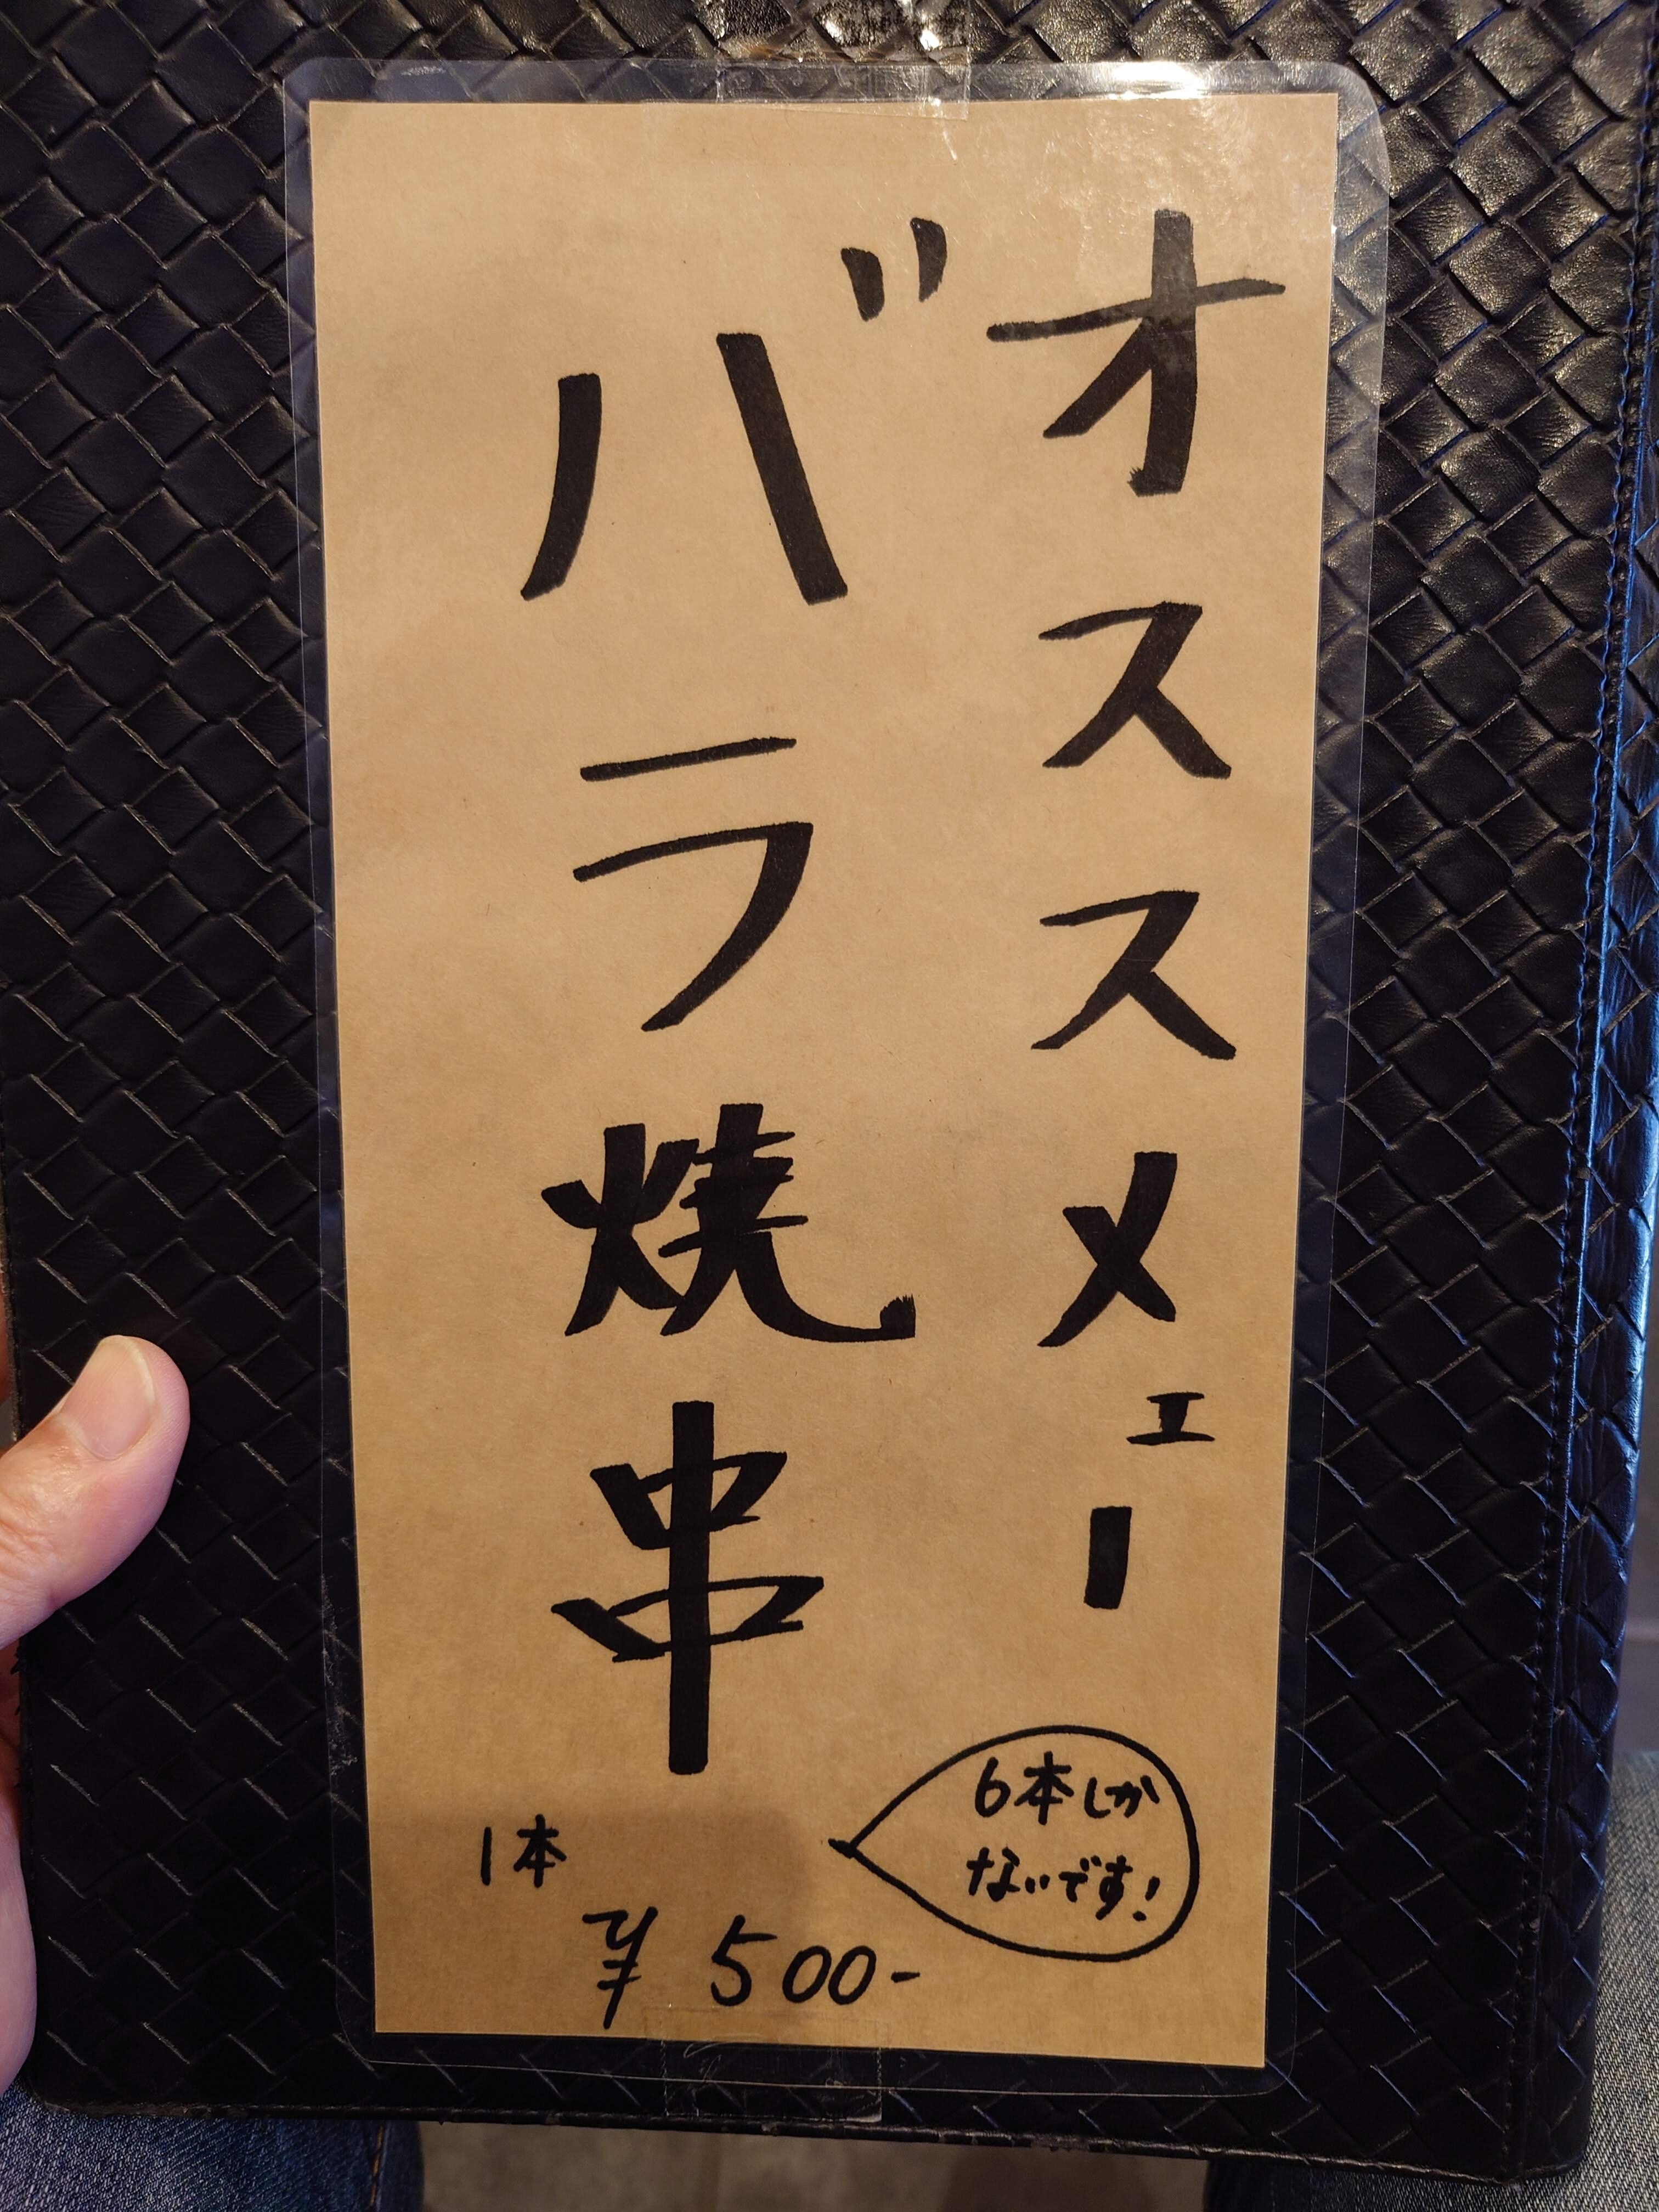 オススメェー
バラ焼串
6本しか
ないです!
1本
¥500-